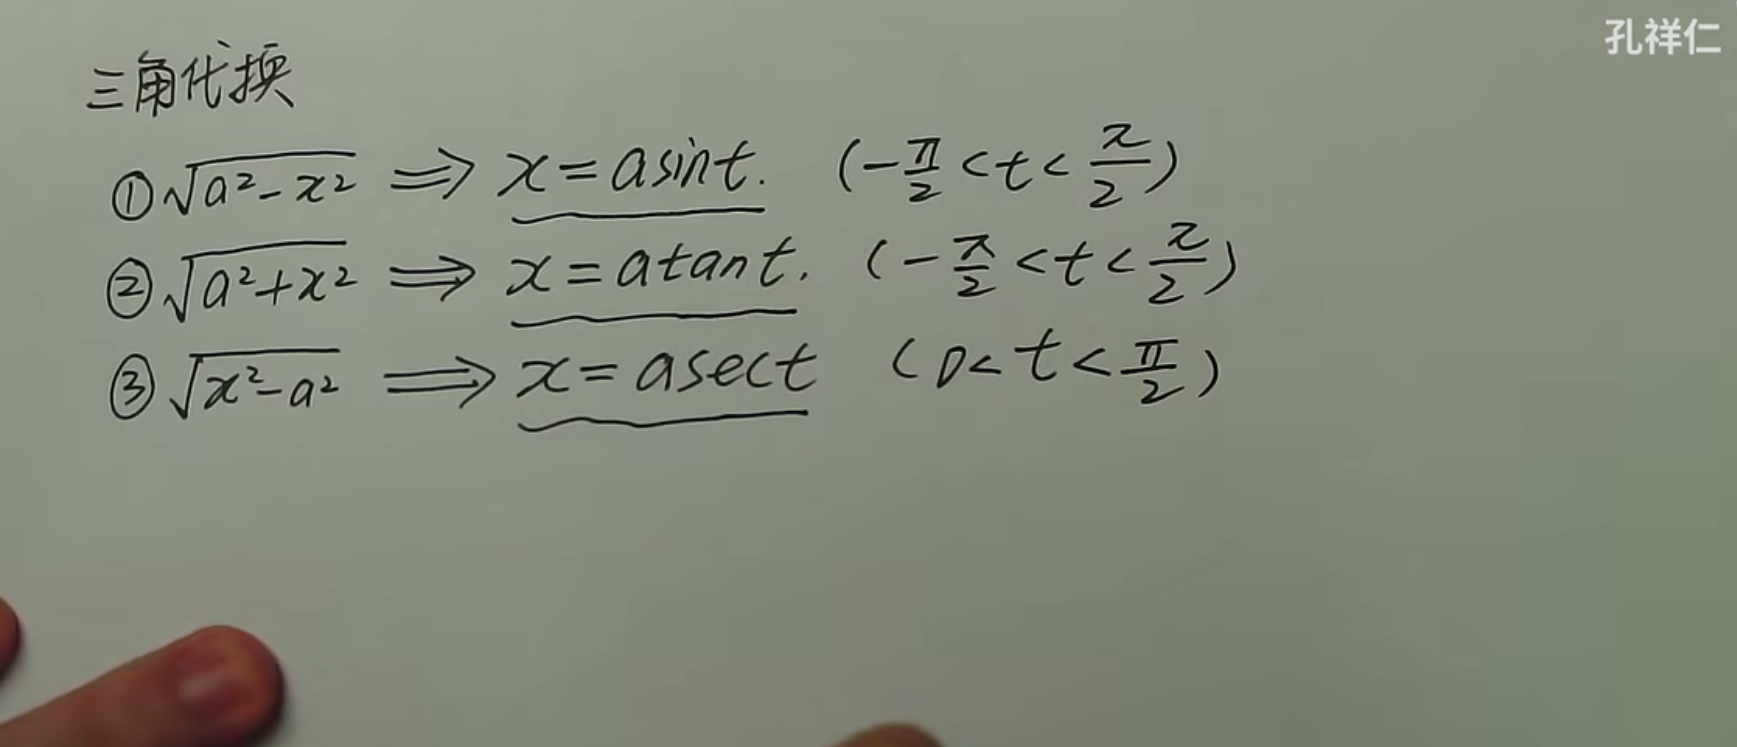 孔祥仁
三角代换
①√(a²-x²) ⟹ x=asint. (-π/2<t<π/2)
②√(a²+x²) ⟹ x=atant. (-π/2<t<π/2)
③√(x²-a²) ⟹ x=asect (0<t<π/2)